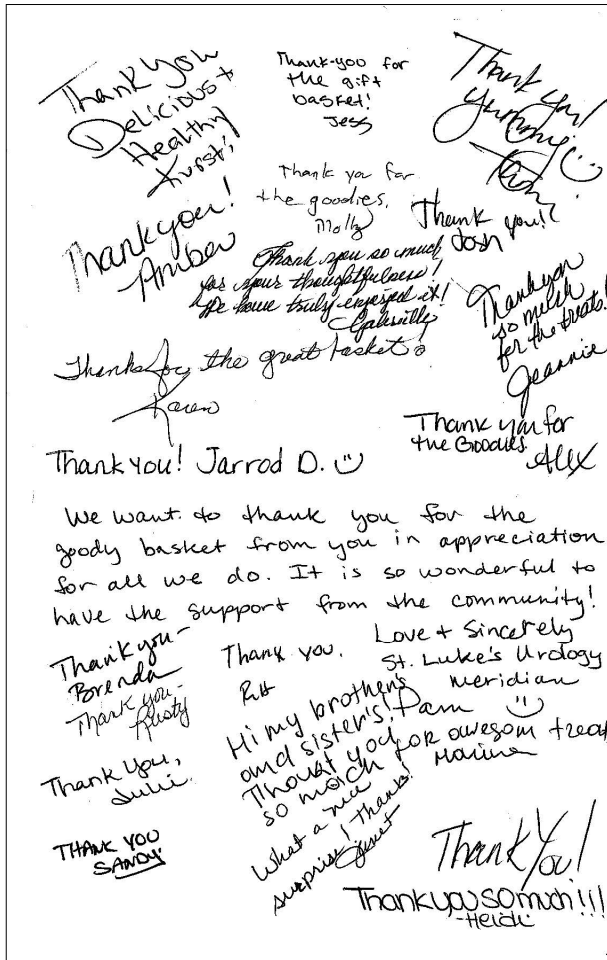 Thank you
Delicious +
Healthy
Thank-you for
the gift
basket!
Jess
Thank you!
yummy
Thank you for
the goodies.
Molly
Thank you!
Amber
Thank you!!
Josh
Thank you so much
for your thoughtfulness!
We have truly enjoyed it!
Thank you
so much
for the treats!
Jeannie
Thanks for the great basket
Karen
Thank you for
the Goodies.
Alex
Thank you! Jarrod D.
We want to thank you for the
goody basket from you in appreciation
for all we do. It is so wonderful to
have the support from the community!
Love + Sincerely
St. Luke's Urology
Meridian
Thank you -
Brenda
Thank you -
Kristy
Thank you.
Pam
Hi my brothers
and sister's!
Thouat you
so moich for awesom treat
Marina
Thank You,
Julie
THANK YOU
SANDY
What a nice
surprise! Thanks!
Janet
Thank You!
Thank you SO much!!!
-Heidi